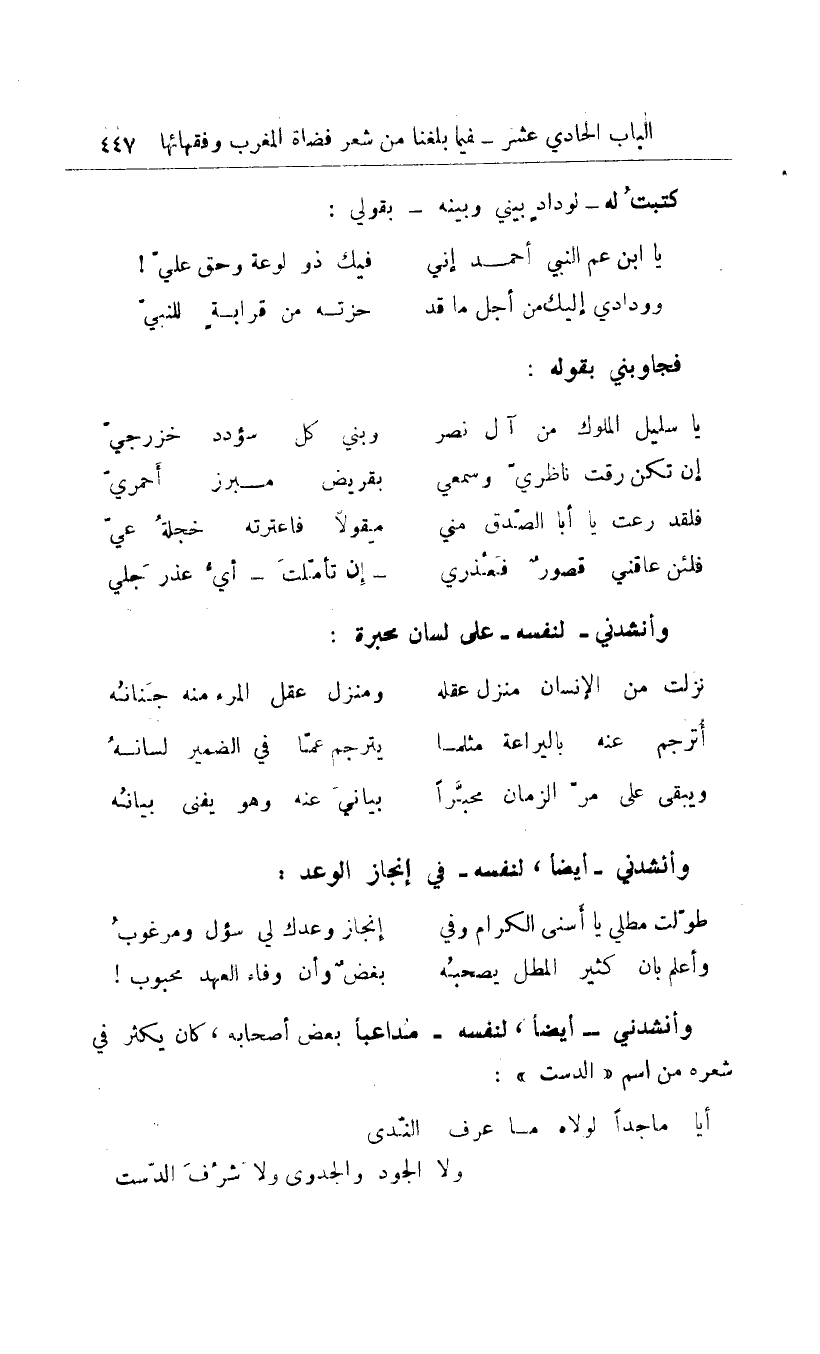 الباب الحادي عشر – فيما بلغنا من شعر قضاة المغرب وفقهائها ٤٤٧
كتبتُ له – لودادٍ بيني وبينه – بقولي :
يا ابن عم النبي أحمـــد إني فيك ذو لوعة وحق عليّ !
وودادي إليك من أجل ما قد حزتــه من قرابــةٍ للنبيّ
فجاوبني بقوله :
يا سليل الملوك من آل نصر وبني كل سؤدد خزرجيّ
إن تكن رقت ناظريّ وسمعي بقريض مـــبرز أحمريّ
فلقد رعت يا أبا الصّدق مني ميقولاً فاعترته خجلةُ عيّ
فلئن عاقني قصورٌ فَعُذري – إن تأمّلتَ – أيُ عذر جَلي
وأنشدني – لنفسه – على لسان محبرة :
نزلت من الإنسان منزل عقله ومنزل عقل المرء منه جَنانُه
أُترجم عنه باليراعة مثلمــا يترجم عمّا في الضمير لسانــهُ
ويبقى على مرّ الزمان محبَّراً بيانيَ عنه وهو يفنى بيانُه
وأنشدني – أيضاً ، لنفسه – في إنجاز الوعد :
طوّلت مطلي يا أسنى الكرام وفي إنجاز وعدك لي سؤل ومرغوبُ
وأعلم بان كثير المطل يصحبُه بغضٌ وأن وفاء العهد محبوب !
وأنشدني – أيضاً ، لنفسه – مُداعباً بعض أصحابه ، كان يكثر في
شعره من اسم « الدست » :
أيا ماجداً لولاه مــا عرف النّدى
ولا الجود والجدوى ولا شرُفَ الدّست